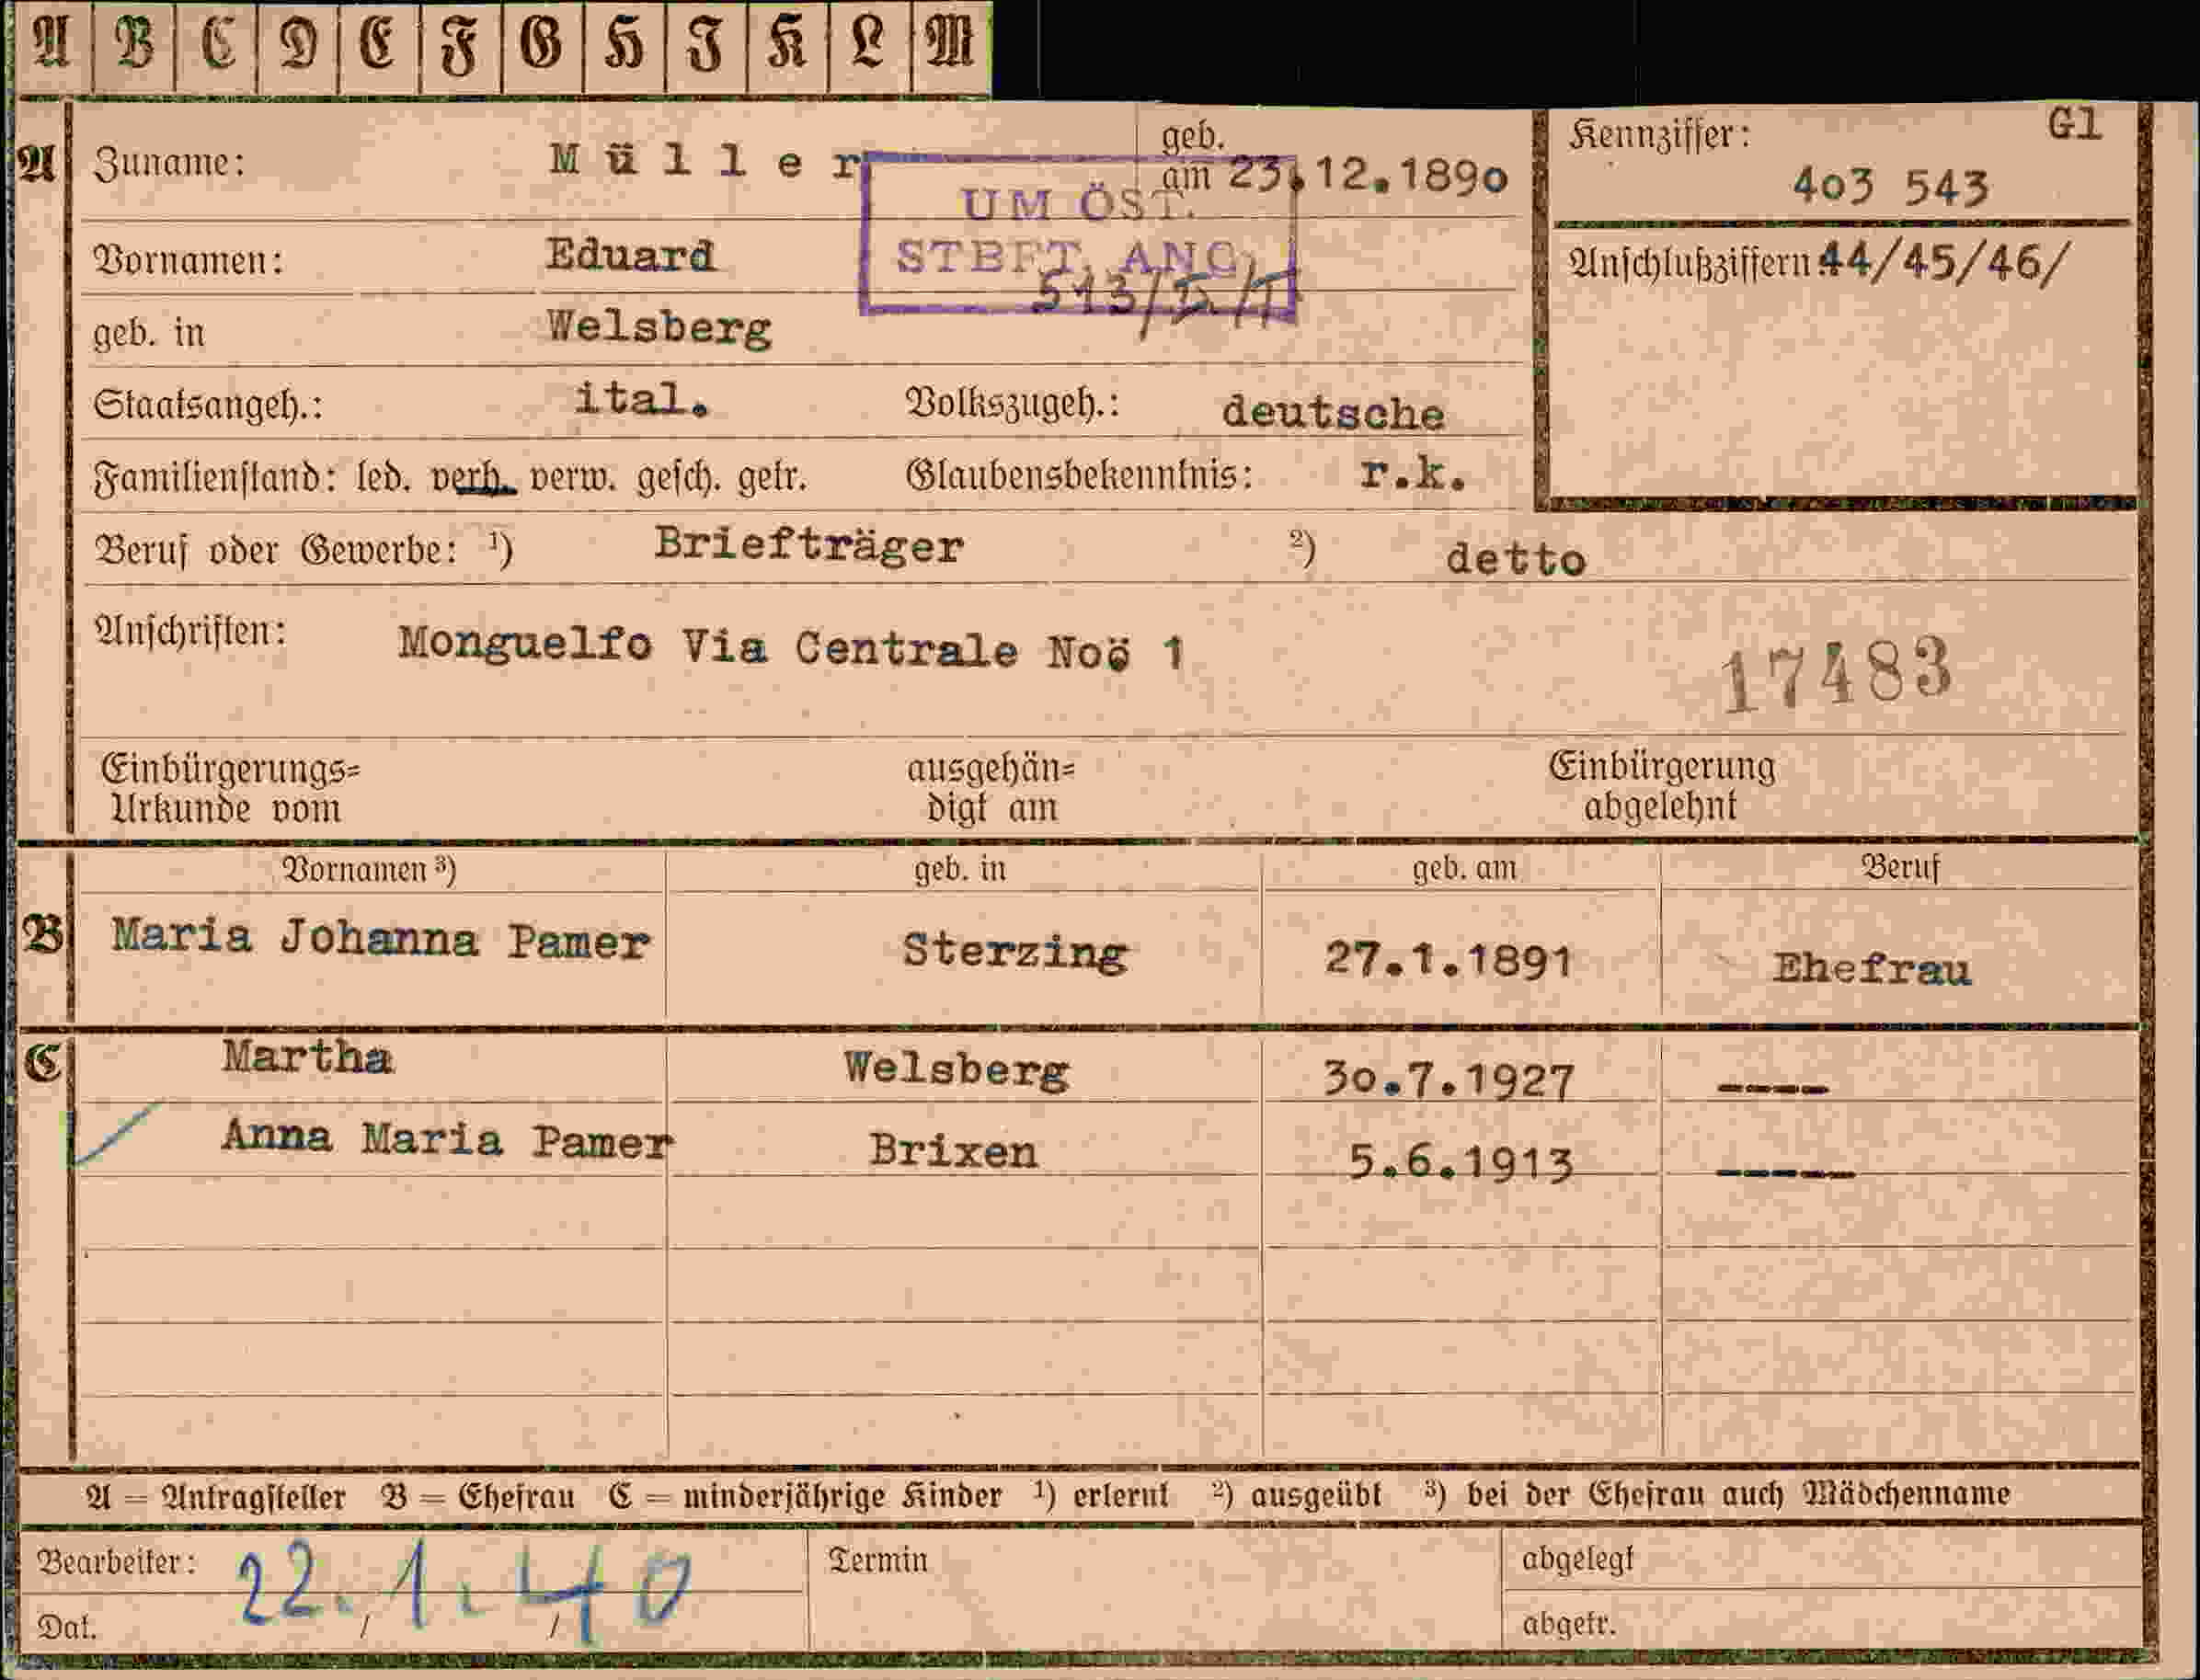 A B C D E F G H I K L M
A Zuname: Müller geb. am 23.12.1890
Kennziffer: Gl
403 543
UM ÖST.
STBFT. ANG.
Vornamen: Eduard
Anschlußziffern: 44/45/46/
geb. in Welsberg
Staatsangeh.: ital. Volkszugeh.: deutsche
Familienstand: led. verh. verw. gesch. getr. Glaubensbekenntnis: r.k.
Beruf oder Gewerbe: ¹) Briefträger ²) detto
Anschriften: Monguelfo Via Centrale Noö 1
17483
Einbürgerungs= ausgehän= Einbürgerung
Urkunde vom digt am abgelehnt
Vornamen ³) geb. in geb. am Beruf
B Maria Johanna Pamer Sterzing 27.1.1891 Ehefrau
C Martha Welsberg 30.7.1927 ----
Anna Maria Pamer Brixen 5.6.1913 -----
A = Antragsteller B = Ehefrau C = minderjährige Kinder ¹) erlernt ²) ausgeübt ³) bei der Ehefrau auch Mädchenname
Bearbeiter: Termin abgelegt
22.1.40
Dat. / / abgetr.